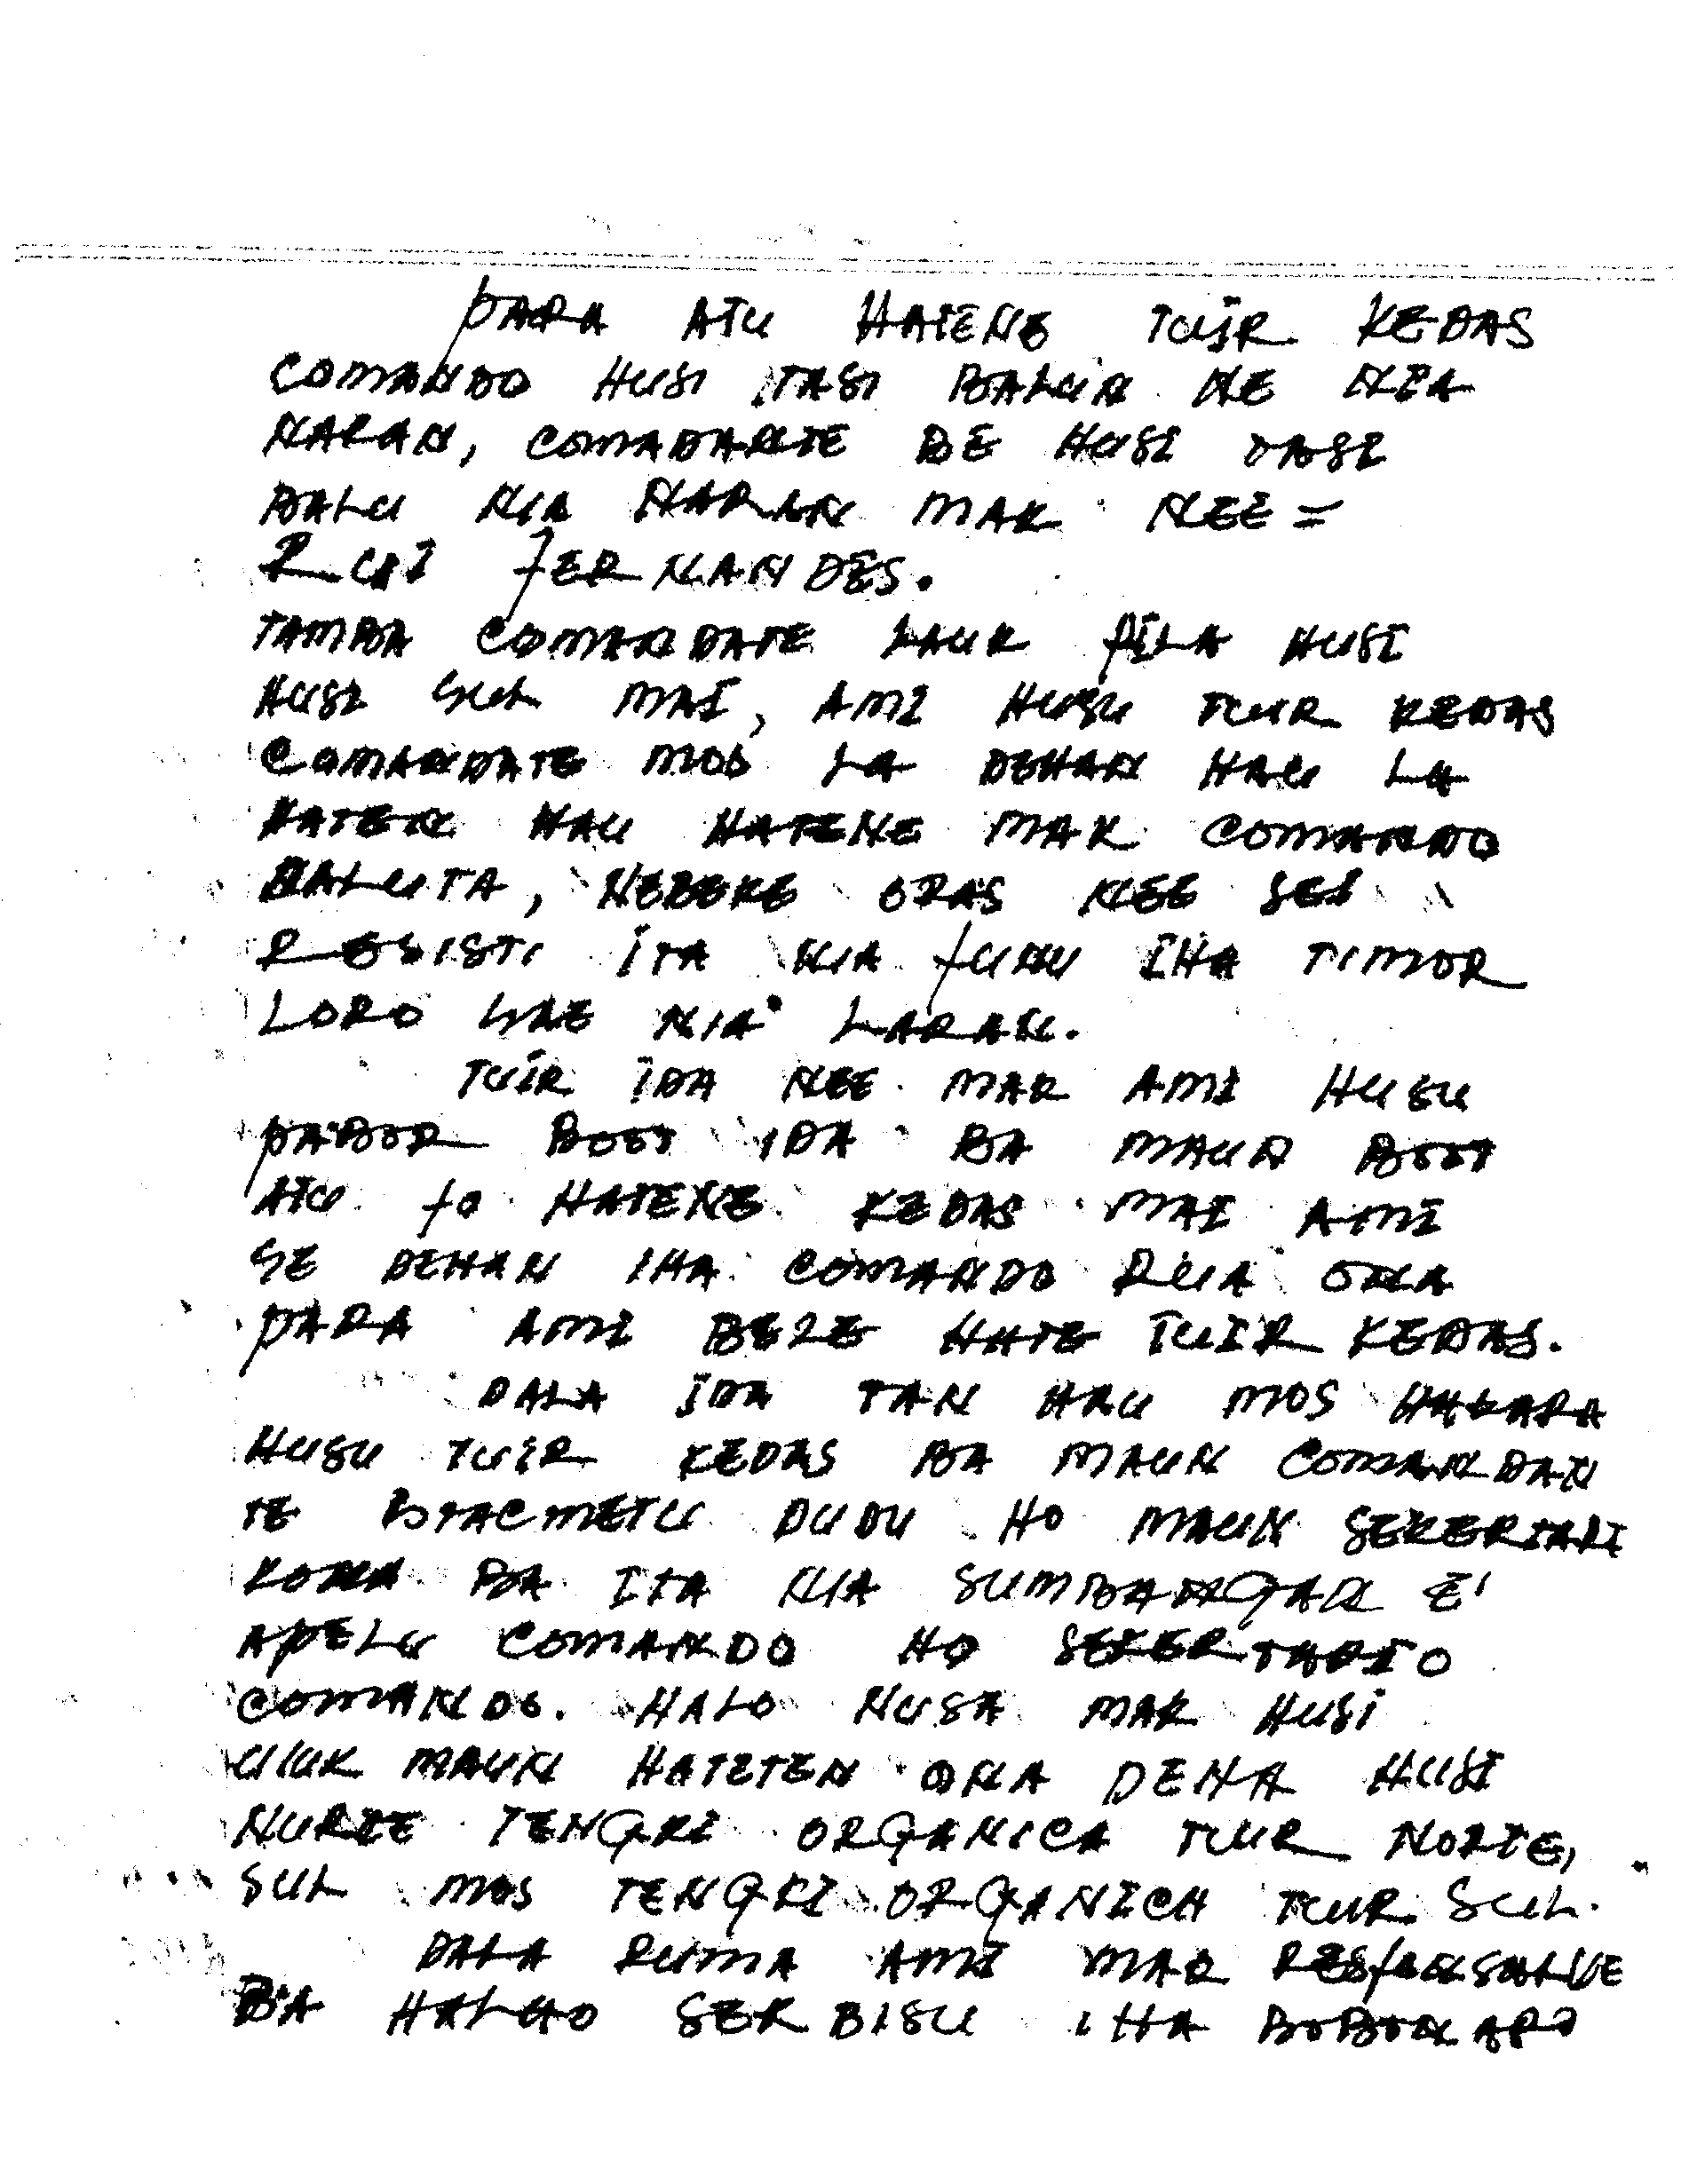 PARA ATU HATENE TUIR KEDAS
COMANDO HUSI TASI BALUN NE NIA
NARAN, COMADANTE DE HUSI TASI
BALU NIA NARAN MAK NEE =
RUI FERNANDES.
TAMBA COMANDATE LAUR FILA HUSI
HUSI SUL MAI, AMI HUSU TUIR KEDAS
COMANDATE MOS LA DEHAN HAU LA
HATEN HAU HATENE MAK COMANDO
BALUTA, NEBEKE ORAS NEE SEI
REGISTI ITA NIA FUNU IHA TIMOR
LORO SAE NIA LARAN.
TUIR IDA NEE MAK AMI HUSU
PABOR BOOT IDA BA MAUN BOOT
ATU FO HATENE KEDAS MAI AMI
SE DEHAN IHA COMANDO RUA ONA
PARA AMI BELE HATE TUIR KEDAS.
DALA IDA TAN HAU MOS HAKARA
HUSU TUIR KEDAS BA MAUN COMANDAN
TE DUDU HO MAUN SEKERTARI
KONA BA ITA NIA SUMBANGAN E'
APELU COMANDO HO SEKERTARIO
COMANDO. HALO NUSA MAK HUSI
ULUK MAUN HATETEN ONA DEHA HUSI
NURTE TENGKI ORGANICA TUUR NORTE,
SUL MOS TENGKI ORGANICH TUUR SUL.
DALA RUMA AMI MAK RESPONSALVE
BA HALAO SERBISU IHA BOBONARO